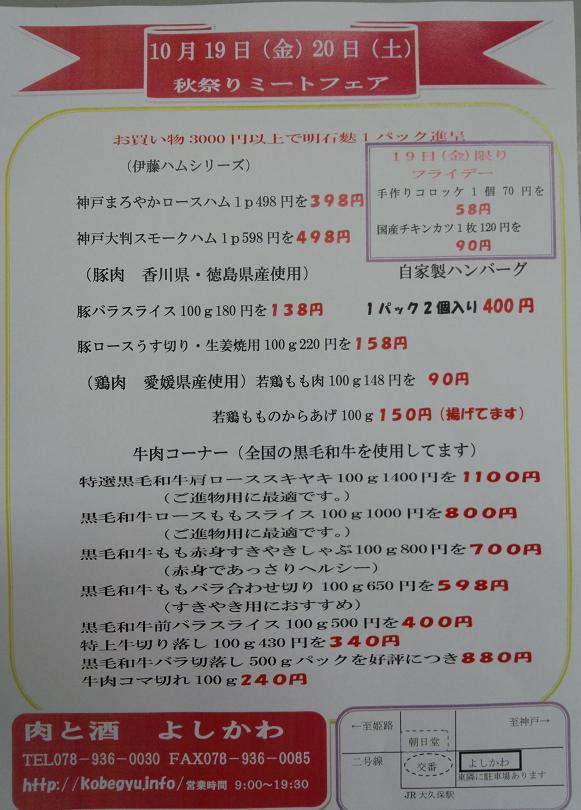 10月19日（金）20日（土）
秋祭りミートフェア
お買い物3000円以上で明石麩1パック進呈
（伊藤ハムシリーズ）
神戸まろやかロースハム1p498円を398円
神戸大判スモークハム1p598円を498円
19日（金）限り
フライデー
手作りコロッケ1個70円を
58円
国産チキンカツ1枚120円を
90円
（豚肉　香川県・徳島県産使用）
豚バラスライス100g180円を138円
豚ロースうす切り・生姜焼用100g220円を158円
自家製ハンバーグ
1パック2個入り400円
（鶏肉　愛媛県産使用）若鶏もも肉100g148円を　90円
若鶏もものからあげ100g150円（揚げてます）
牛肉コーナー（全国の黒毛和牛を使用してます）
特選黒毛和牛肩ローススキヤキ100g1400円を1100円
（ご進物用に最適です。）
黒毛和牛ロースももスライス100g1000円を800円
（ご進物用に最適です。）
黒毛和牛もも赤身すきやきしゃぶ100g800円を700円
（赤身であっさりヘルシー）
黒毛和牛ももバラ合わせ切り100g650円を598円
（すきやき用におすすめ）
黒毛和牛前バラスライス100g500円を400円
特上牛切り落し100g430円を340円
黒毛和牛バラ切落し500gパックを好評につき880円
牛肉コマ切れ100g240円
肉と酒　よしかわ
TEL078－936－0030 FAX078－936－0085
http://kobegyu.info/営業時間 9:00〜19:30
←至姫路
至神戸→
朝日堂
二号線
交番
よしかわ
東隣に駐車場あります
JR 大久保駅